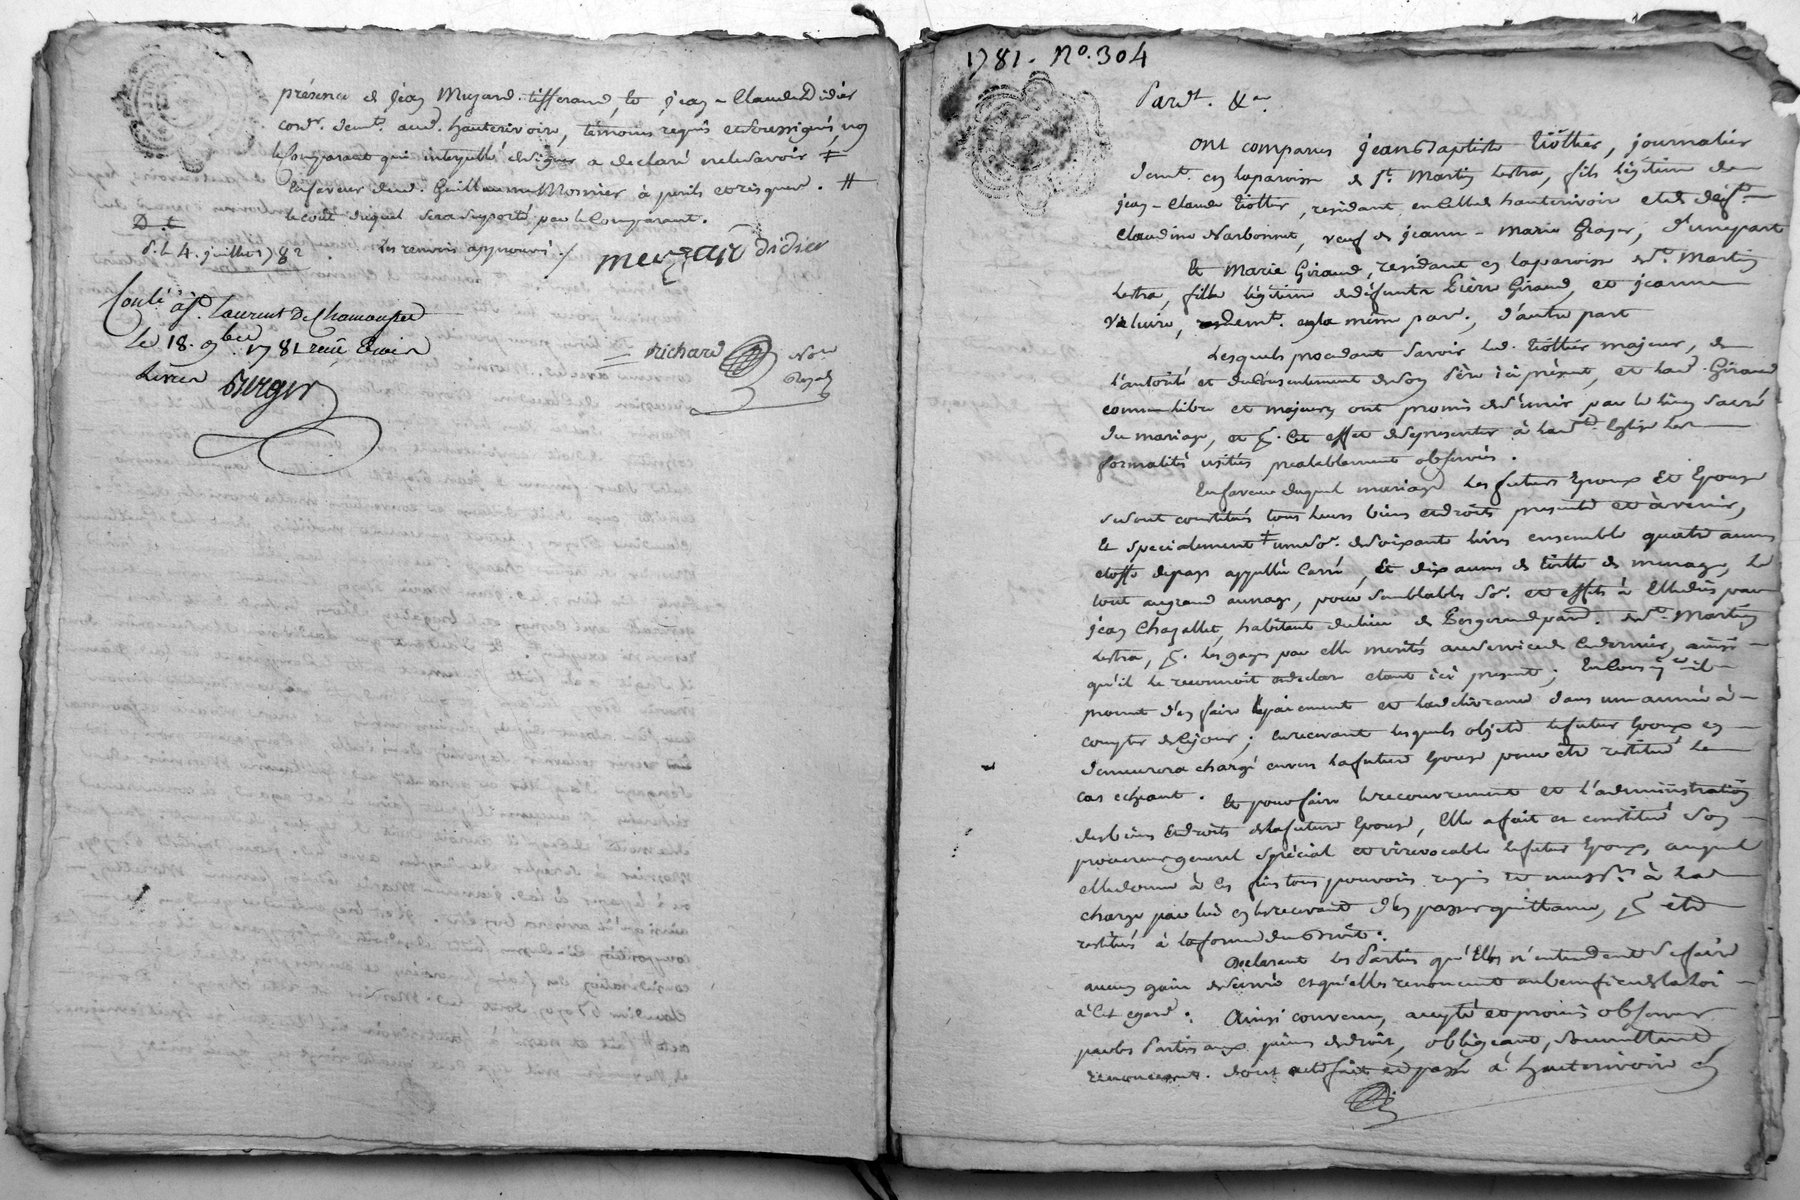 présence de Jean Muzard tisserand, et jean-Claude Didier
cordr. demt. aud. hauterivoire, témoins requis et soussignés, non
le Comparant qui interpellé de signer a declaré ne le savoir ‡
En faveur dud. Guillaume Monnier à perils et risques. #
le cout duquel sera suporté par le Comparant.
D. t
d. l. 4. juillet 1782
les renvois approuvés
merzard didier
Conlé à St. Laurent De Chamousset
Le 18. 9bre 1781 reçu
Livres Berger
Richard Nore
Royal
1781. No. 304
Pardt. &a.
Ont comparus jean Baptiste Viollier, journalier
demt. en la paroisse de St. Martin Lestra, fils légitime de
jean-Claude Viollier, résidant en celle d'hauterivoire et de défte.
Claudine Narbonnet, veuf de jeanne-Marie Grager, d'une part
Et Marie Giraud, residant en la paroisse de St. Martin
Lestra, fille légitime de défunts Pierre Giraud, et jeanne
demt. en la même par., d'autre part
Lesquels procedant savoir led. Viollier majeur, de
l'autorité et du consentement de son Père ici présent, et lad. Giraud
comme libre et majeure ont promis de s'unir par le lien sacré
du mariage, et pr. cet effet de se presenter à la ste. Eglise les
formalités usitées prealablement observées.
En faveur duquel mariage les futurs Epoux Et Epouse
se sont constitués tous leurs biens et droits presents et à venir,
Et specialement ‡ une so. de soixante livres ensemble quatre aunes
etoffe de pays appellée Carré, Et dix aunes de toille de menage, Le
tout au grand aunage, pour semblables so. et effets à Elle dus par
jean Chazallet, habitant du lieu de par. de St. Martin
Lestra, pr. les gages par elle merités au service de ce dernier, ainsi
qu'il le reconnoit et declare etant ici present; En conséqce. il
promet d'en faire le paiement et la delivrance dans une année à
compter de ce jour; en recevant lesquels objets le futur Epoux en
demeurera chargé envers la future Epouse pour etre restitué le
cas echeant. Et pour faire le recouvrement et l'administration
des biens et droits de la future Epouse, Elle a fait et constitué son
procureur general spécial et irrevocable le futur Epoux, auquel
elle donne à ces fins tous pouvoirs requis et necess.res à la
charge par lui en les recevant d'en passer quittance, pr. etre
restitués à la forme du droit.
Declarant les Parties qu'Elles n'entendent se faire
aucun gain de survie et qu'elles renoncent au benefice de la loi
à cet egard. Ainsi convenu, accepté et promis observer
par les Parties aux peines de droit, obligeant, soumettant,
renonceant. dont acte fait et passé à hauterivoire en